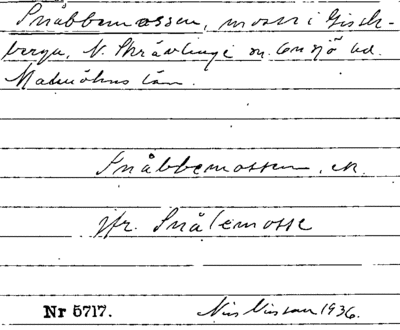 Snåbbemossen, mosse i Gissle-
berga, N. Skrävlinge sn. Oxie hd.
Malmöhus län.
Snåbbemossen, ek.
jfr. Snålemosse
Nr 5717. Nils Nilsson 1936.